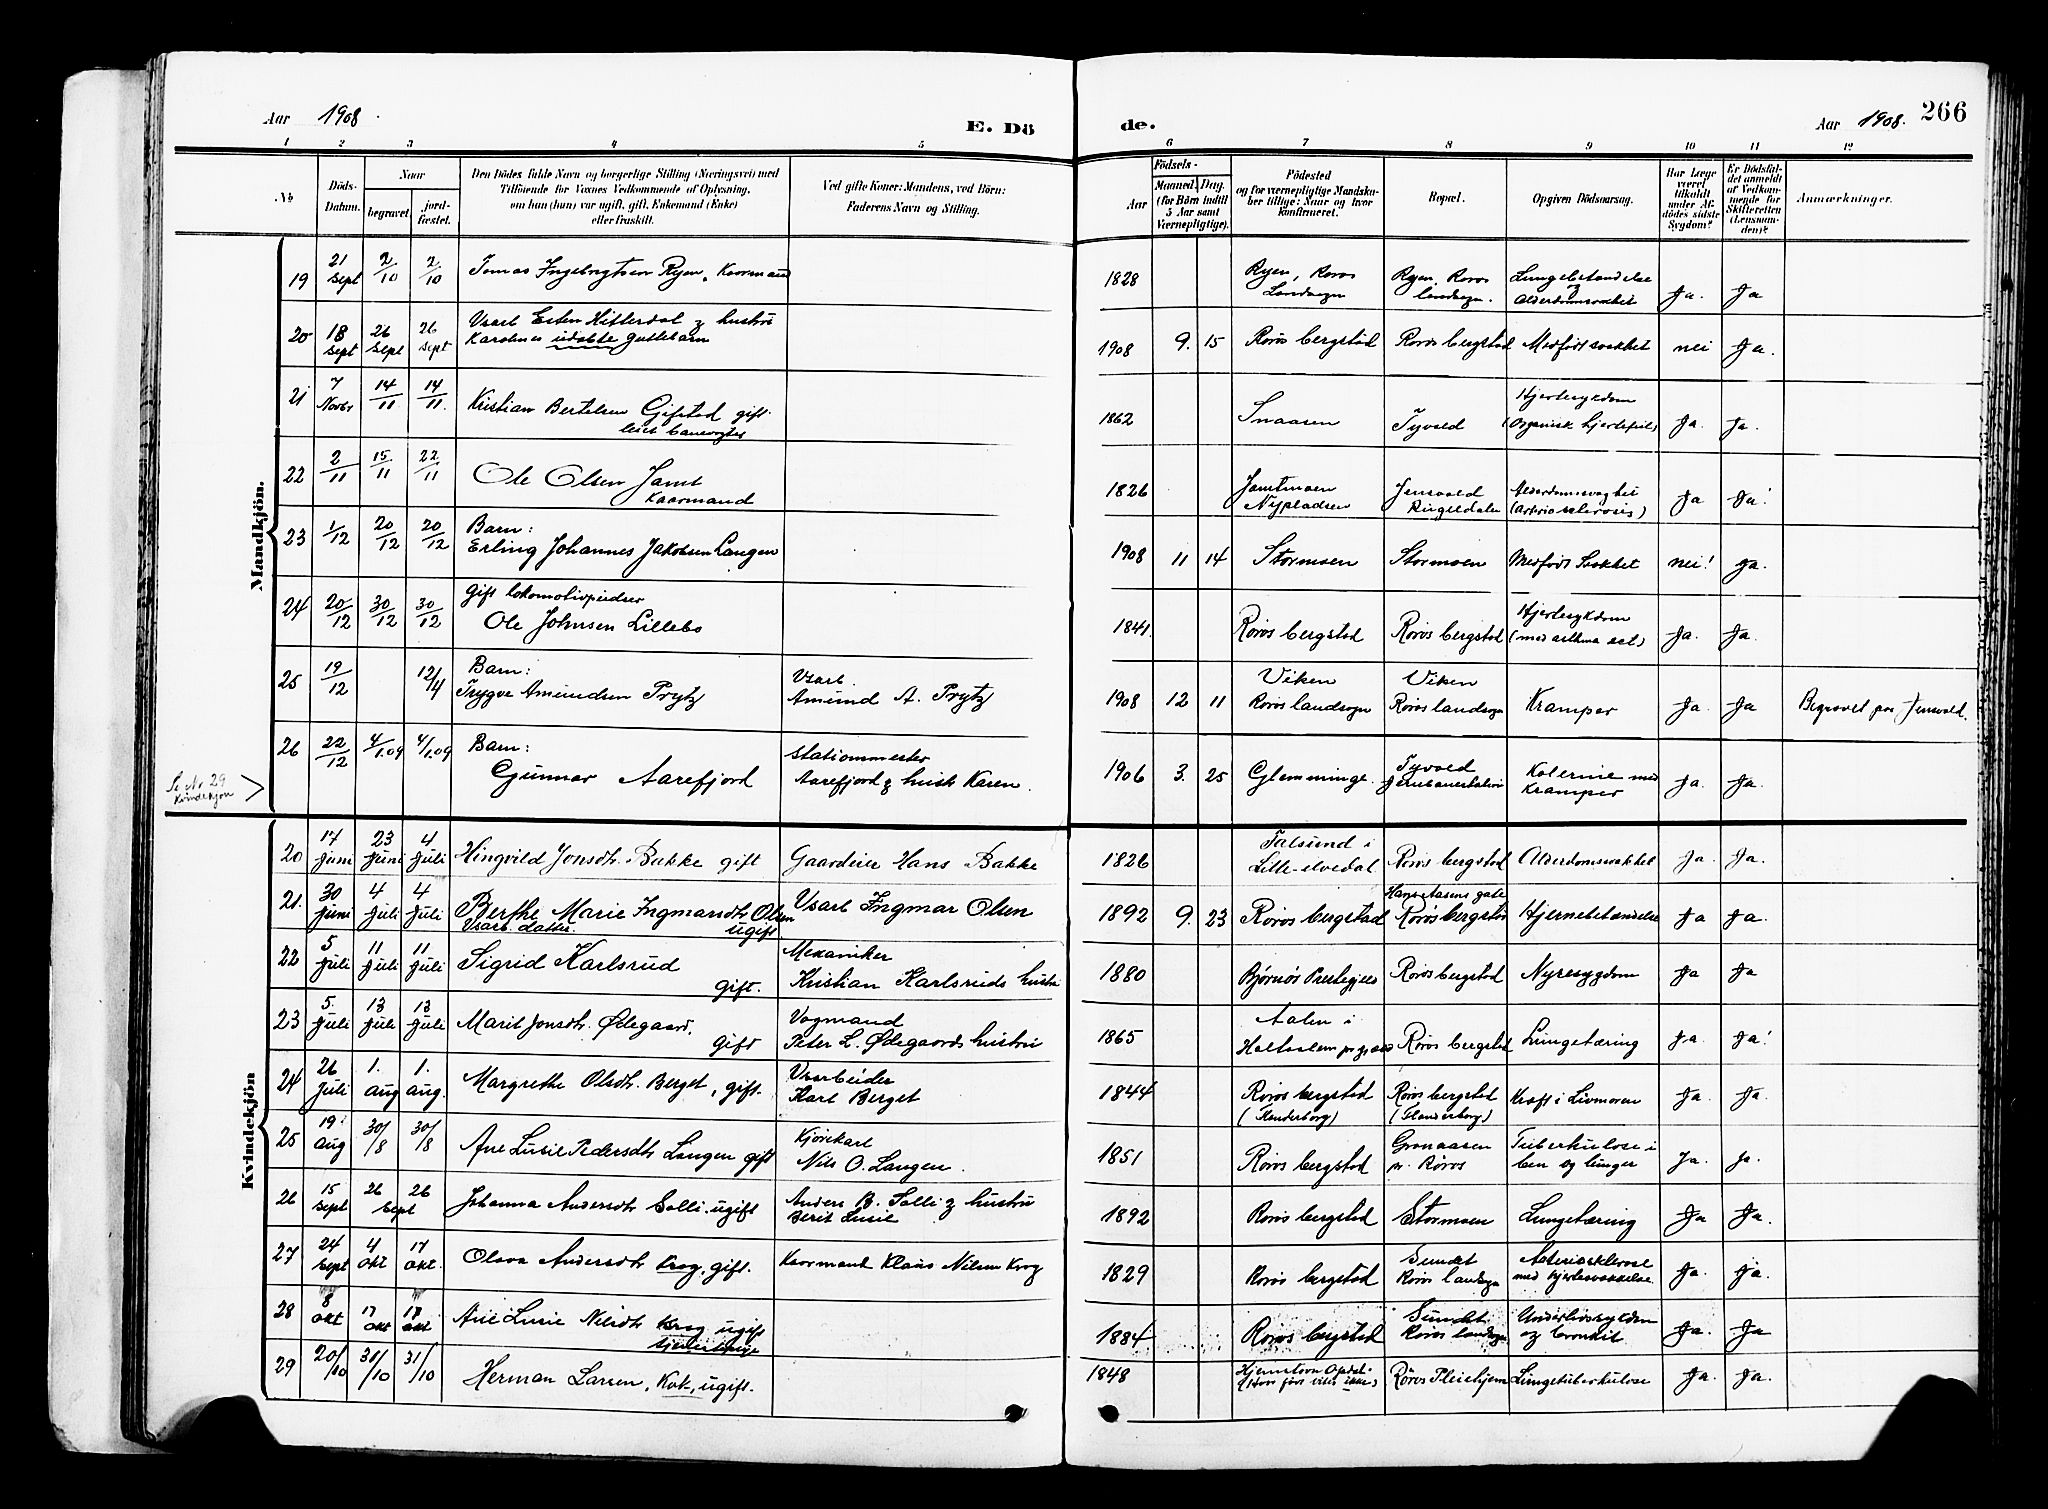 Aar 1908. E. Dö de. Aar 1908. 266
1 2 3 4 5 6 7 8 9 10 11 12
No
Döds-
Datum.
Naar
begravet. jord-
fæstet.
Den Dödes fulde Navn og borgerlige Stilling (Næringsvei) med
Tilföiende for Voxnes Vedkommende af Oplysning,
om han (hun) var ugift, gift, Enkemand (Enke)
eller fraskilt.
Ved gifte Koner: Mandens, ved Börn:
Faderens Navn og Stilling.
Födsels-
Aar Maaned. Dag.
(for Börn indtil
5 Aar samt
Værnepligtige).
Födested
og for værnepligtige Mandska-
ber tillige: Naar og hvor
konfirmeret.
Bopæl.
Opgiven Dödsaarsag.
Har Læge
været
tilkaldt
under Af-
dödes sidste
Sygdom?
Er Dödsfal-
det anmeldt
af Vedkom-
mende for
Skifteretten
(Lensman-
den)?
Anmærkninger.
Mandkjön.
19 21 sept 2/10 2/10 Tomas Ingebrigtsen Ryen, Kaarmand 1828 Ryen, Røros Landsogn Ryen, Røros landsogn. Lungebetændelse og Alderdomssvakhet Ja. Ja
20 18 sept 26 sept 26 sept Vsarb. Esten Hitterdal & hustru
Karolines udøbte guttebarn 1908 9. 15 Røros bergstad Røros bergstad Medfødt svakhet nei Ja.
21 7 Novbr 14/11 14/11. Kristian Bertelsen Gifstad gift.
1862 Snaasen Tyvold Hjertesykdom
(Organisk hjertefeil) Ja. Ja.
22 2/11 15/11 22/11 Ole Olsen Jamt
Kaarmand 1826 Jamtmoen
Nypladsen Jensvold
Ringeldalen Alderdomssvaghet
(Arterio sclerosis) Ja Ja!
23 1/12 20/12 20/12 Barn:
Erling Johannes Jakobsen Langen 1908 11 14 Stormoen Stormoen Medfødt Svakhet nei! ja.
24 20/12 30/12 30/12 Gift lokomotivpudser
Ole Johnsen Lillebo 1841. Røros bergstad Røros bergstad Hjertesykdom
(med asthma) Ja. Ja.
25 19/12 12/4 Barn:
Trygve Amundsen Prytz Vsarb.
Amund A. Prytz 1908 12 11 Viken
Røros landsogn Viken
Røros landsogn Kramper Ja. Ja Begravet paa Jensvold.
26 22/12 4/1.09 4/1.09 Barn:
Gunnar Aarefjord Stationsmester
Aarefjord & hust. Karen. 1906 3. 25 Glemminge. Tyvold
Jernbanestation Kolerine med
Kramper Ja. Ja.
Se Nr 29
Kvindekjøn
Kvindekjön
20 17 Juni 23 Juni 4 Juli Hingvild Jonsdtr. Bakke gift Gaardeier Hans Bakke 1826 Talsund i
Lille-elvedal Røros bergstad Alderdomssvakhet Ja. Ja.
21. 30 Juni 4 Juli 4 Juli Berthe Marie Ingmarsdtr Olsen
Vsarb. datter. ugift Vsarb Ingmar Olsen 1892 9. 23 Røros bergstad Hans Aasens gate
Røros bergstad Hjernebetændelse Ja Ja.
22 5 Juli 11 Juli 11 Juli Sigrid Karlsrud
gift. Mekaniker
Kristian Karlsruds hustru 1880 Bjørnør Prestegjeld Røros bergstad Nyresygdom Ja Ja
23 5. Juli 13 Juli 13 Juli Marit Jonsdtr. Ødegaard,
gift Vogmand
Peter L. Ødegaards hustru 1865 Aalen i
Holtaalens prgjeld Røros bergstad Lungetæring Ja. Ja!
24 26 Juli 1. aug 1. aug. Margrethe Olsdtr. Berget, gift. Vsarbeider
Karl Berget 1844 Røros bergstad
(Flanderborg) Røros bergstad
(Flanderborg) Kræft i Livmoren Ja. Ja.
25 19 aug 30/8 30/8 Ane Lusie Pedersdtr Langen gift Kjørekarl
Nils O. Langen. 1851 Røros bergstad Grønaasen
pr. Røros Tuberkulose i
ben og lunger Ja. Ja.
26 15 sept 26 sept 26 Johanna Andersdtr Solli, ugift Anders B. Solli & hustru
Berit Lusie 1892 Røros bergstad Stormoen Lungetæring Ja Ja.
27 24 sept 4 okt 17 okt. Olava Andersdtr Krog, gift. Kaarmand Klaus Nilsen Krog 1829 Røros bergstad Sundet
Røros landsogn Arteriosklerose
med hjertesvækkelse. Ja. Ja.
28 8 okt 17 okt 17 okt Ane Lusie Nilsdtr Krog ugift
1884 Røros bergstad Sundet
Røros landsogn Underlivssykdom
og bronkit Ja. Ja
29 20/10 31/10 31/10 Herman Larsen, Kok, ugift. 1848 Hjemstavn Opdal.
(Hvor født vites ikke) Røros Pleiehjem Lungetuberkulose Ja. Ja.